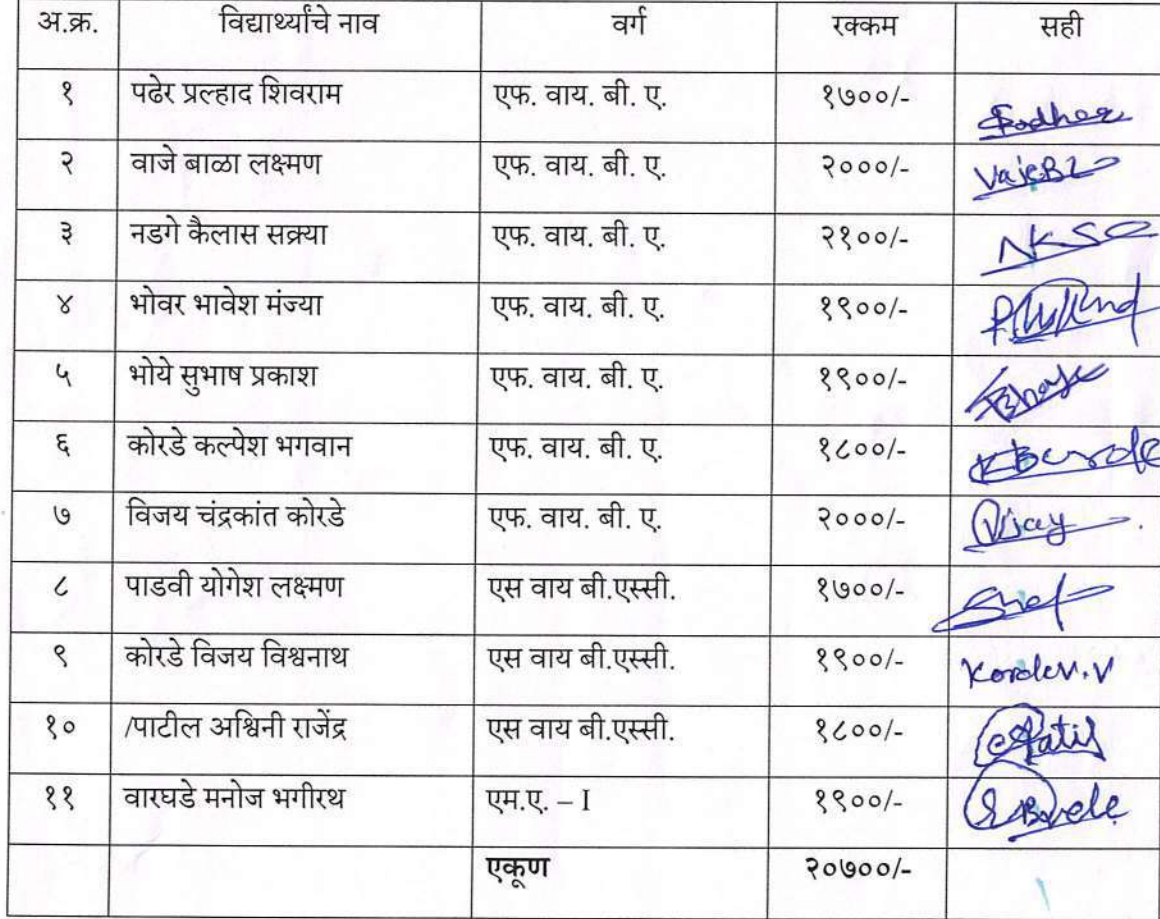 अ.क्र. विद्यार्थ्यांचे नाव वर्ग रक्कम सही
१ पढेर प्रल्हाद शिवराम एफ. वाय. बी. ए. १७००/-
२ वाजे बाळा लक्ष्मण एफ. वाय. बी. ए. २०००/- VajeBL
३ नडगे कैलास सक्र्या एफ. वाय. बी. ए. २१००/-
४ भोवर भावेश मंज्या एफ. वाय. बी. ए. १९००/-
५ भोये सुभाष प्रकाश एफ. वाय. बी. ए. १९००/-
६ कोरडे कल्पेश भगवान एफ. वाय. बी. ए. १८००/-
७ विजय चंद्रकांत कोरडे एफ. वाय. बी. ए. २०००/- Vijay
८ पाडवी योगेश लक्ष्मण एस वाय बी.एस्सी. १७००/-
९ कोरडे विजय विश्वनाथ एस वाय बी.एस्सी. १९००/- Korde V.V
१० /पाटील अश्विनी राजेंद्र एस वाय बी.एस्सी. १८००/-
११ वारघडे मनोज भगीरथ एम.ए. – I १९००/-
एकूण २०७००/-